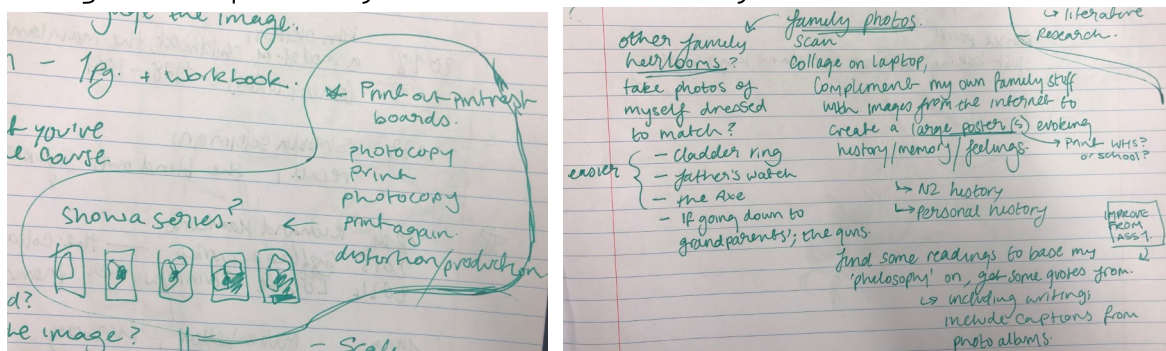 the image.
- 1pg. + workbook.
* Print out pintrest
boards.
t you've
e course
photocopy
print
photocopy
print again.
distortion/production
Show a series?
d?
he image?
- Scale
?
family photos.
scan
Collage on laptop,
Compliment my own family stuff
with images from the internet to
create a large poster(s) evoking
history/memory/feelings.
→ Print WHS?
or school?
↳ NZ history
↳ Personal history
other family
heirlooms?
take photos of
myself dressed
to match?
easier
- Cladder ring
- father's watch
- the Axe
- If going down to
grandparents'; the guns.
↳ literature
- Research.
IMPROVE
FROM
ASS 1.
find some readings to base my
'philosophy' on, get some quotes from.
↳ including writing;
include captions from
photo albums.